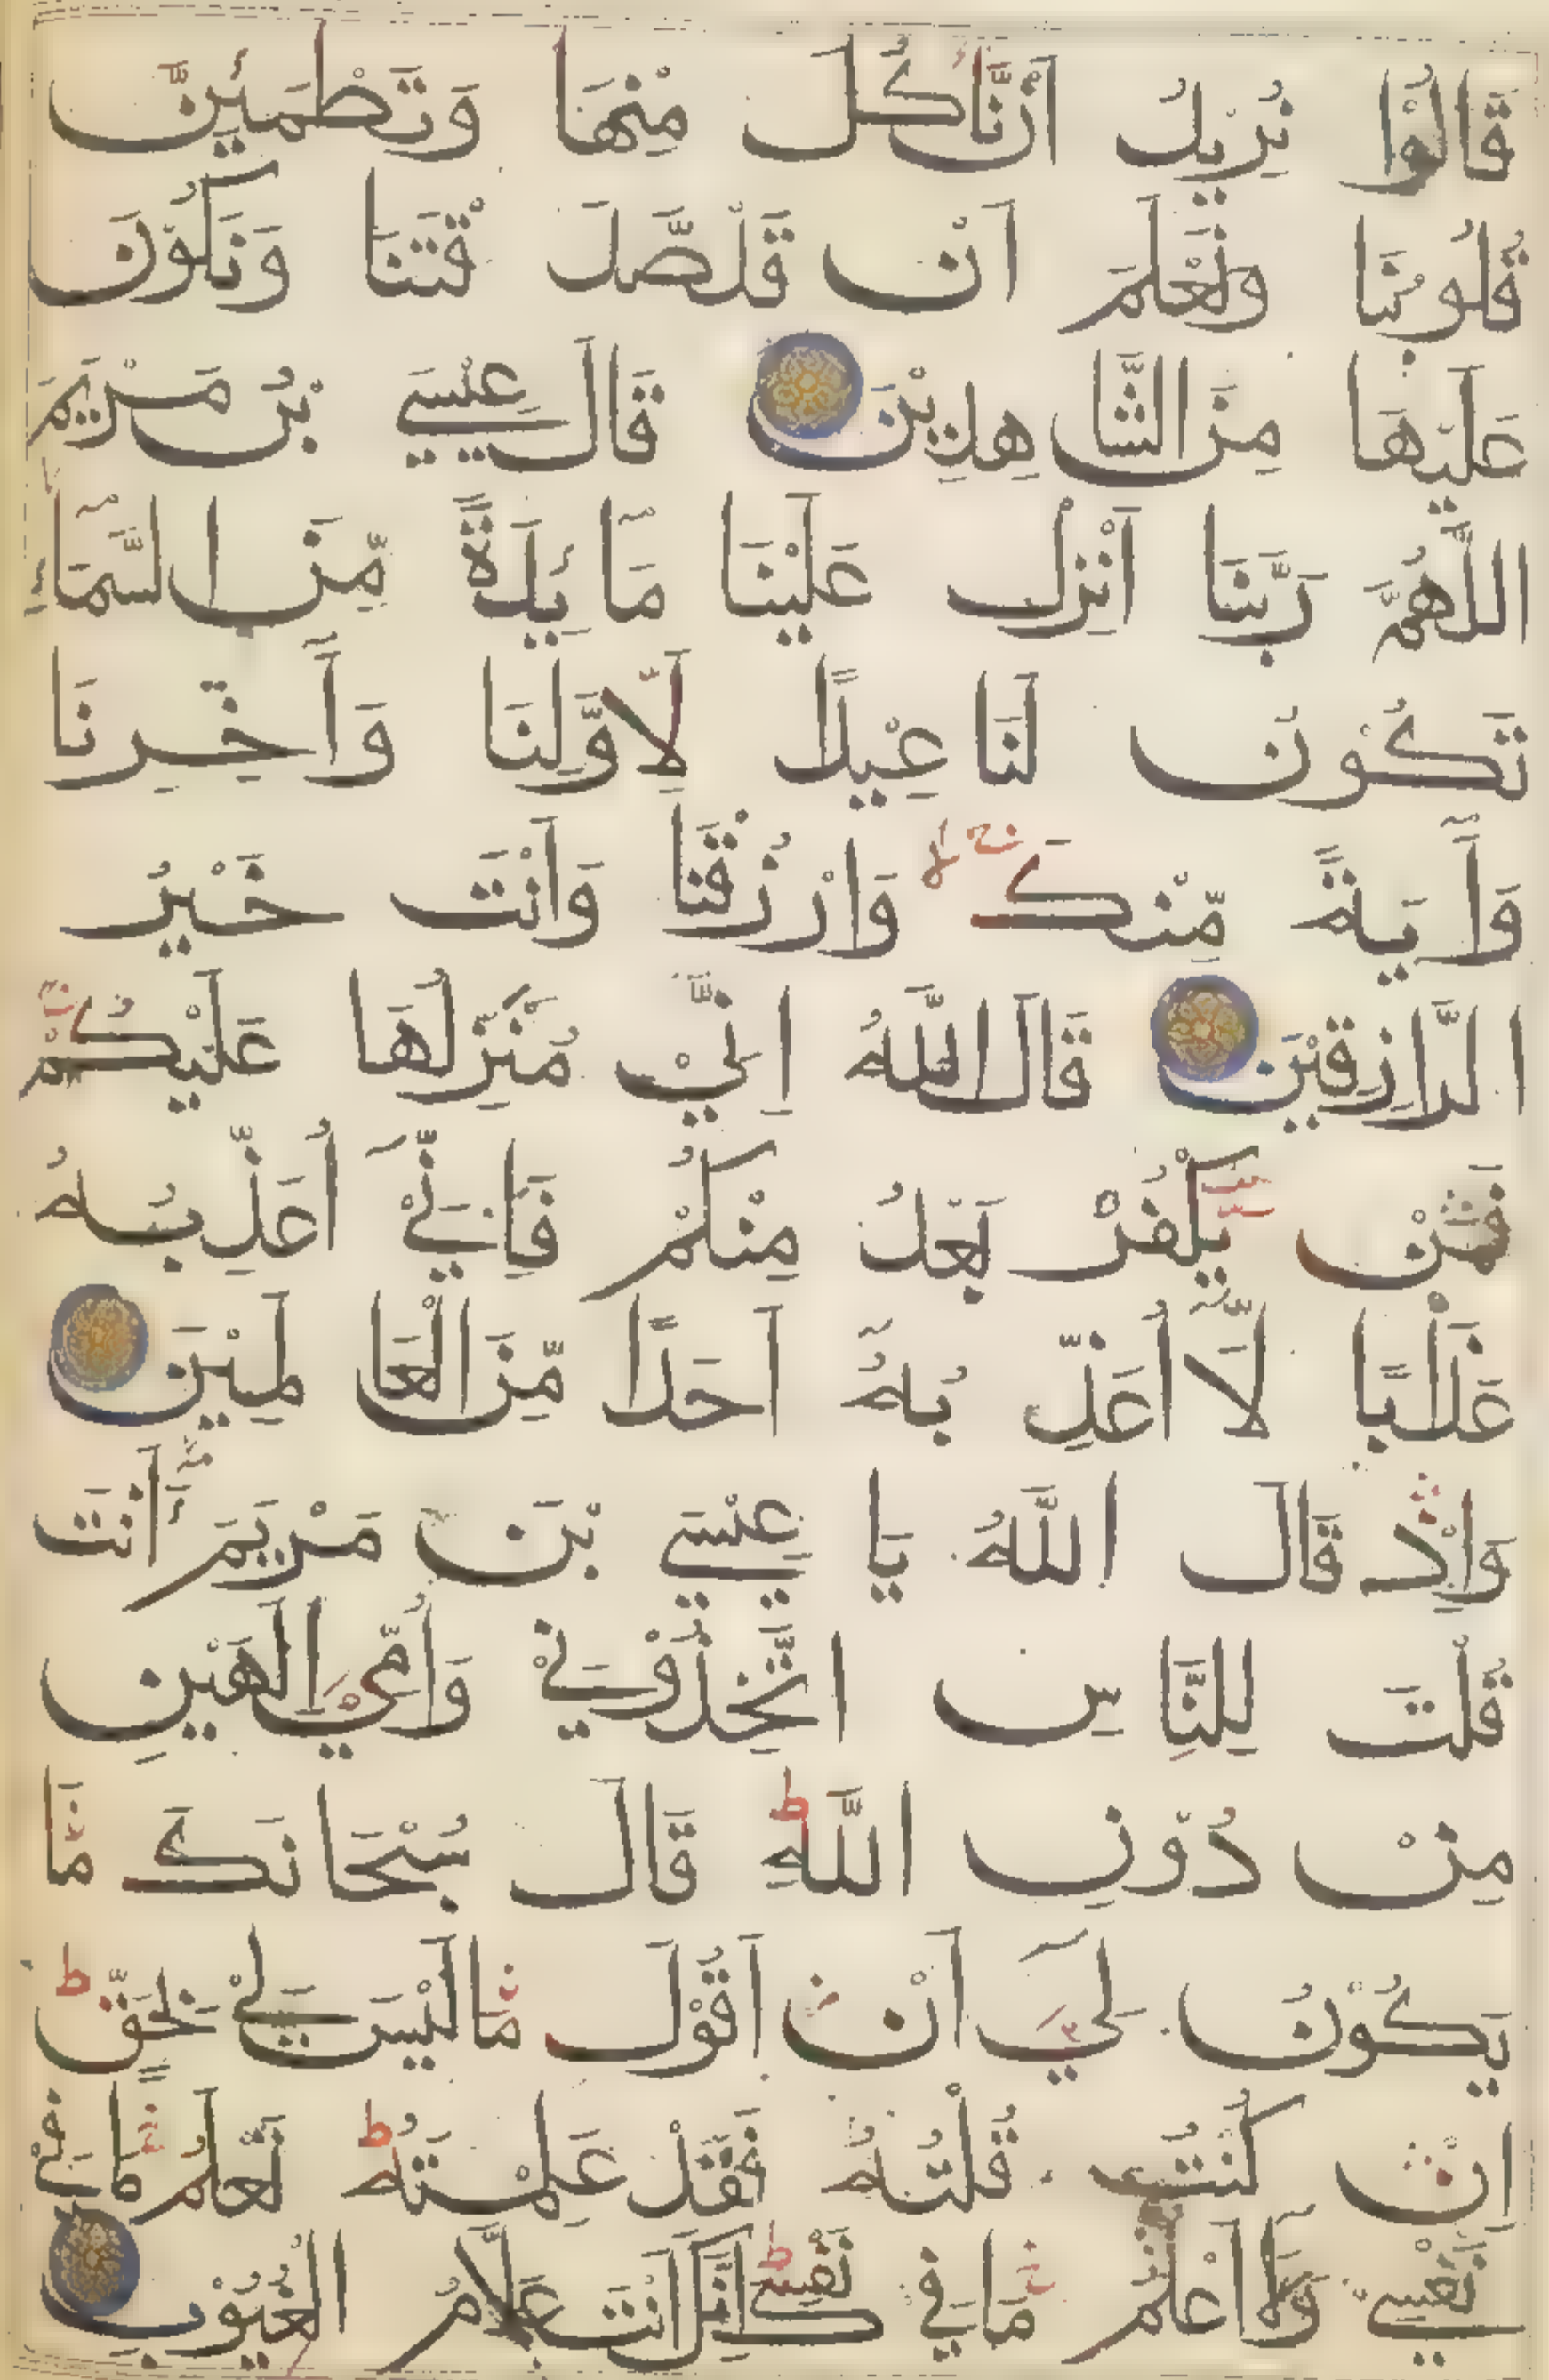 قَالُوْا نُرِيْدُ اَنْ نَّأْكُلَ مِنْهَا وَتَطْمَئِنَّ
قُلُوبُنَا وَنَعْلَمَ اَنْ قَدْ صَدَقْتَنَا وَنَكُوْنَ
عَلَيْهَا مِنَ الشَّاهِدِيْنَ قَالَ عِيْسَي بْنُ مَرْيَمَ
اللّٰهُمَّ رَبَّنَا اَنْزِلْ عَلَيْنَا مَائِدَةً مِّنَ السَّمَاءِ
تَكُوْنُ لَنَا عِيْدًا لِّاَوَّلِنَا وَاٰخِرِنَا
وَاٰيَةً مِّنْكَ وَارْزُقْنَا وَاَنْتَ خَيْرُ
الرَّازِقِيْنَ قَالَ اللّٰهُ اِنِّيْ مُنَزِّلُهَا عَلَيْكُمْ
فَمَنْ يَّكْفُرْ بَعْدُ مِنْكُمْ فَاِنِّيْ اُعَذِّبُهُ
عَذَابًا لَّا اُعَذِّبُهُ اَحَدًا مِّنَ الْعَالَمِيْنَ
وَاِذْ قَالَ اللّٰهُ يَا عِيْسَي بْنَ مَرْيَمَ اَاَنْتَ
قُلْتَ لِلنَّاسِ اتَّخِذُوْنِيْ وَاُمِّيَ اِلٰهَيْنِ
مِنْ دُوْنِ اللّٰهِ ط قَالَ سُبْحَانَكَ مَا
يَكُوْنُ لِيْ اَنْ اَقُوْلَ مَا لَيْسَ لِيْ بِحَقٍّ ط
اِنْ كُنْتُ قُلْتُهُ فَقَدْ عَلِمْتَهُ ط تَعْلَمُ مَا فِيْ
نَفْسِيْ وَلَا اَعْلَمُ مَا فِيْ نَفْسِكَ ط اِنَّكَ اَنْتَ عَلَّامُ الْغُيُوْبِ